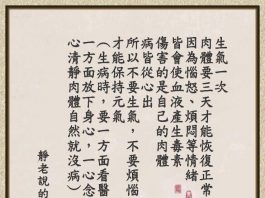 生氣一次
肉體要三天才能恢復正常
因為惱怒、煩悶等情緒
皆會使血液產生毒素
傷害的是自己的肉體
病皆從心出
所以不要生氣，不要煩惱
才能保持元氣
（生病時，要一方面看醫
一方面放下身心，一心念
心清靜肉體自然就沒病）
靜老說的